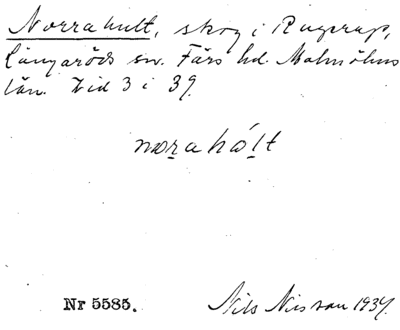 Norrahult, skog i Rugerup,
Långaröds sn. Färs hd. Malmöhus
län. Tid 3 i 39.
norahólt
Nr 5585.
Nils Nilsson 1934.